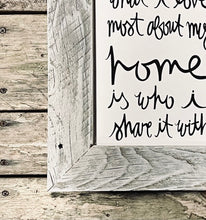 what i love
most about my
home
is who i
share it with